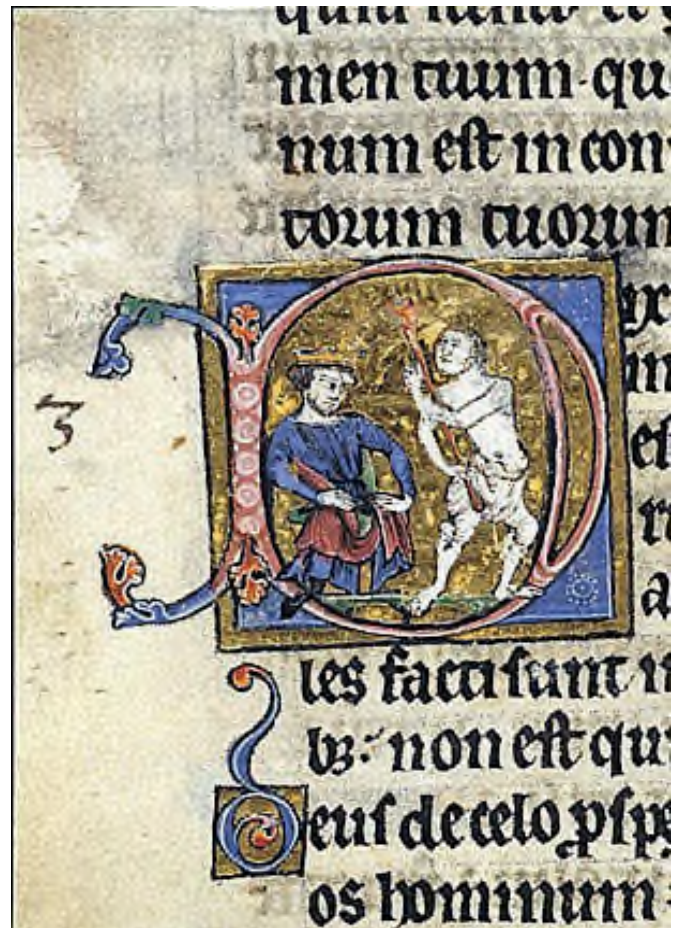 men tuum. qu
num eſt in con
torum tuorum
3
Dix
in
eſ
les facti ſunt
bꝫ: non eſt qu
Deuſ de celo ꝓſp
os hominum